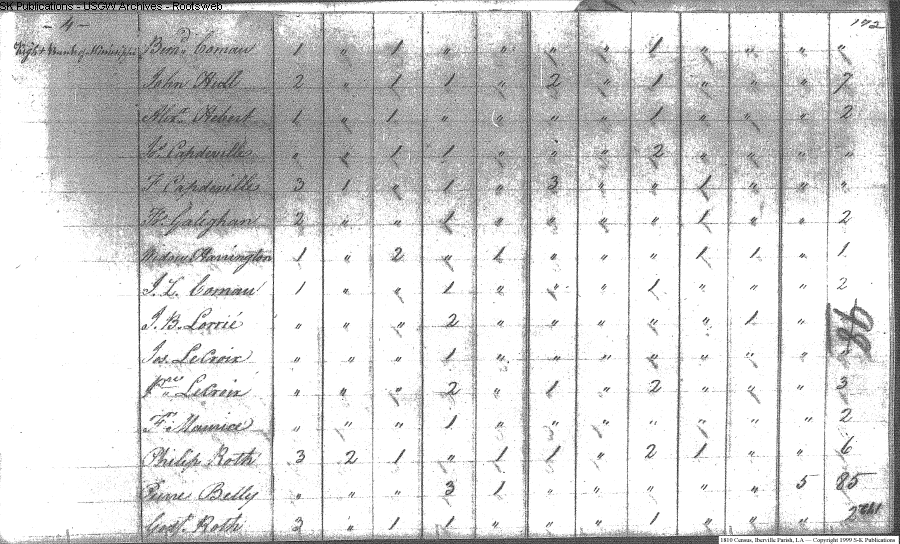 SK Publications - USGW Archives - RootsWeb
- 4 - 172
Right Bank of Mississippi Benj. Comau 1 " 1 " " " " 1 " " " "
John Hidl 2 " 1 1 " 2 " 1 " " " 7
Alexr. Hebert 1 " 1 " " " " 1 " " " 2
Capdeville " " 1 1 " " " 2 " " " "
F. Capdeville 3 1 " 1 " 3 " " 1 " " "
Galeghan 2 " " 1 " " " " 1 " " 2
Widow Harrington 1 " 2 " 1 " " " 1 1 " 1
J. L. Comau 1 " " 1 " " " 1 " " " 2
J. B. Lorrié " " " 2 " " " " " 1 "
Jos. LeCroix " " " 1 " " " " " " "
LeCroix " " " 2 " 1 " 2 " " " 3
Fs. Maurice " " " 1 " " " " " " " 2
Philip Roth 3 2 1 " 1 1 " 2 1 " " 6
Pierre Belly " " " 3 1 " " " " " 5 85
Roth 3 " 1 1 " " " 1 " " "
1810 Census, Iberville Parish, LA — Copyright 1999 S-K Publications